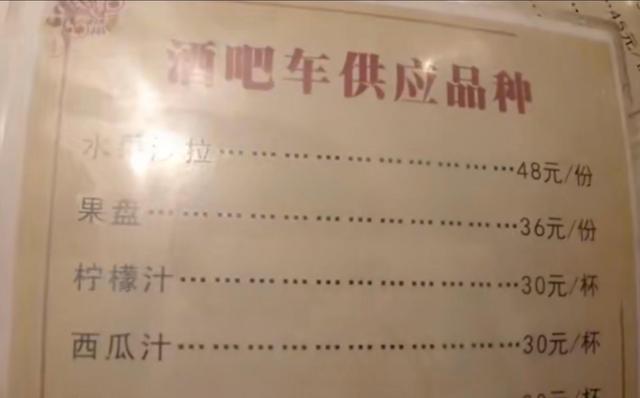 酒吧车供应品种
水果沙拉……………………………48元/份
果盘……………………………………36元/份
柠檬汁…………………………………30元/杯
西瓜汁…………………………………30元/杯